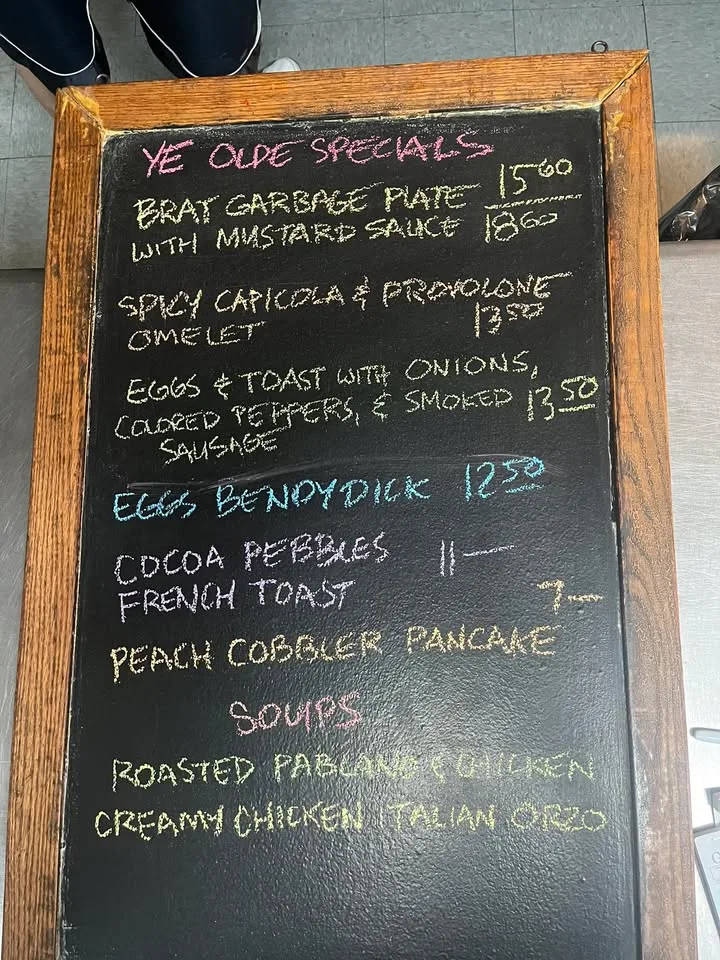 YE OLDE SPECIALS
BRAT GARBAGE PLATE 15⁶⁰
WITH MUSTARD SAUCE 18⁶⁰
SPICY CAPICOLA & PROVOLONE
OMELET 13⁵⁰
EGGS & TOAST WITH ONIONS,
COLORED PEPPERS, & SMOKED 13⁵⁰
SAUSAGE
EGGS BENDYDICK 12⁵⁰
COCOA PEBBLES 11—
FRENCH TOAST
7—
PEACH COBBLER PANCAKE
SOUPS
ROASTED PABLANO & CHICKEN
CREAMY CHICKEN ITALIAN ORZO